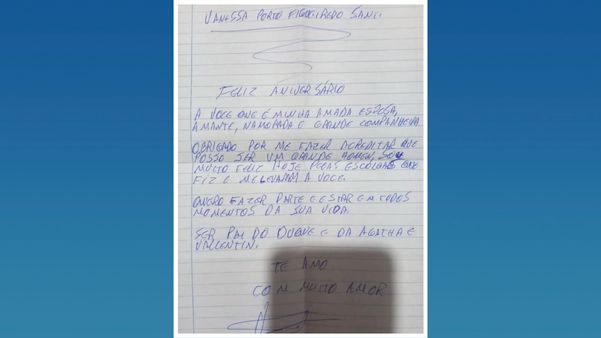 VANESSA PORTO FIGUEIREDO SANCI
FELIZ ANIVERSÁRIO
A VOCE QUE É MINHA AMADA ESPOSA,
AMANTE, NAMORADA E GRANDE COMPANHEIRA
OBRIGADO POR ME FAZER ACREDITAR QUE
POSSO SER UM GRANDE HOMEM, SOU
MUITO FELIZ HOJE PELAS ESCOLHAS QUE
FIZ E ME LEVARAM A VOCE.
QUERO FAZER PARTE E ESTAR EM TODOS
MOMENTOS DA SUA VIDA.
SER PAI DO DUQUE E DA AGATHA E
VALLENTIN.
TE AMO
COM MUITO AMOR